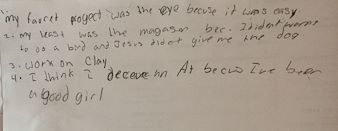 my favret progect was the eye becuse it was easy
2. my least was the magasen bec. I dident wanna
to do a bird and Jesus didet give me the dog
3. work on clay
4. I think I deceve an At becus I've been
a good girl